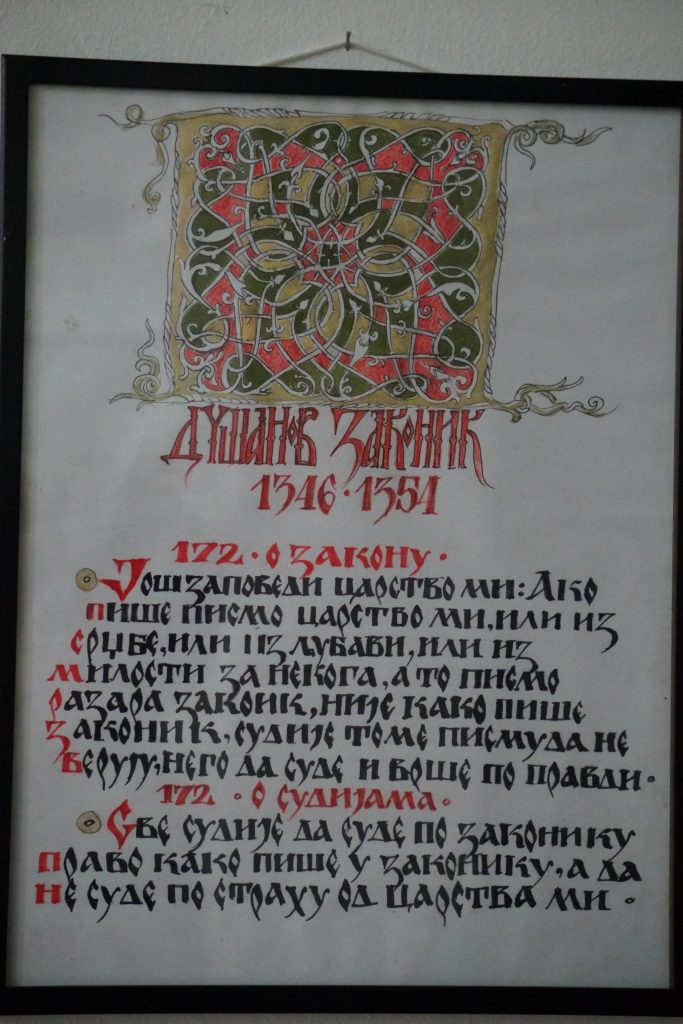 Душанов Законик
1346 · 1354
172 · о закону ·
Још заповеди царство ми: Ако
пише писмо царство ми, или из
срџбе, или из лубави, или из
милости за некога, а то писмо
разара закоик, није како пише
законик, судије томе писму да не
верују, него да суде и врше по правди ·
172 · о судијама ·
Све судије да суде по законику
право како пише у законику, а да
не суде по страху од царства ми ·